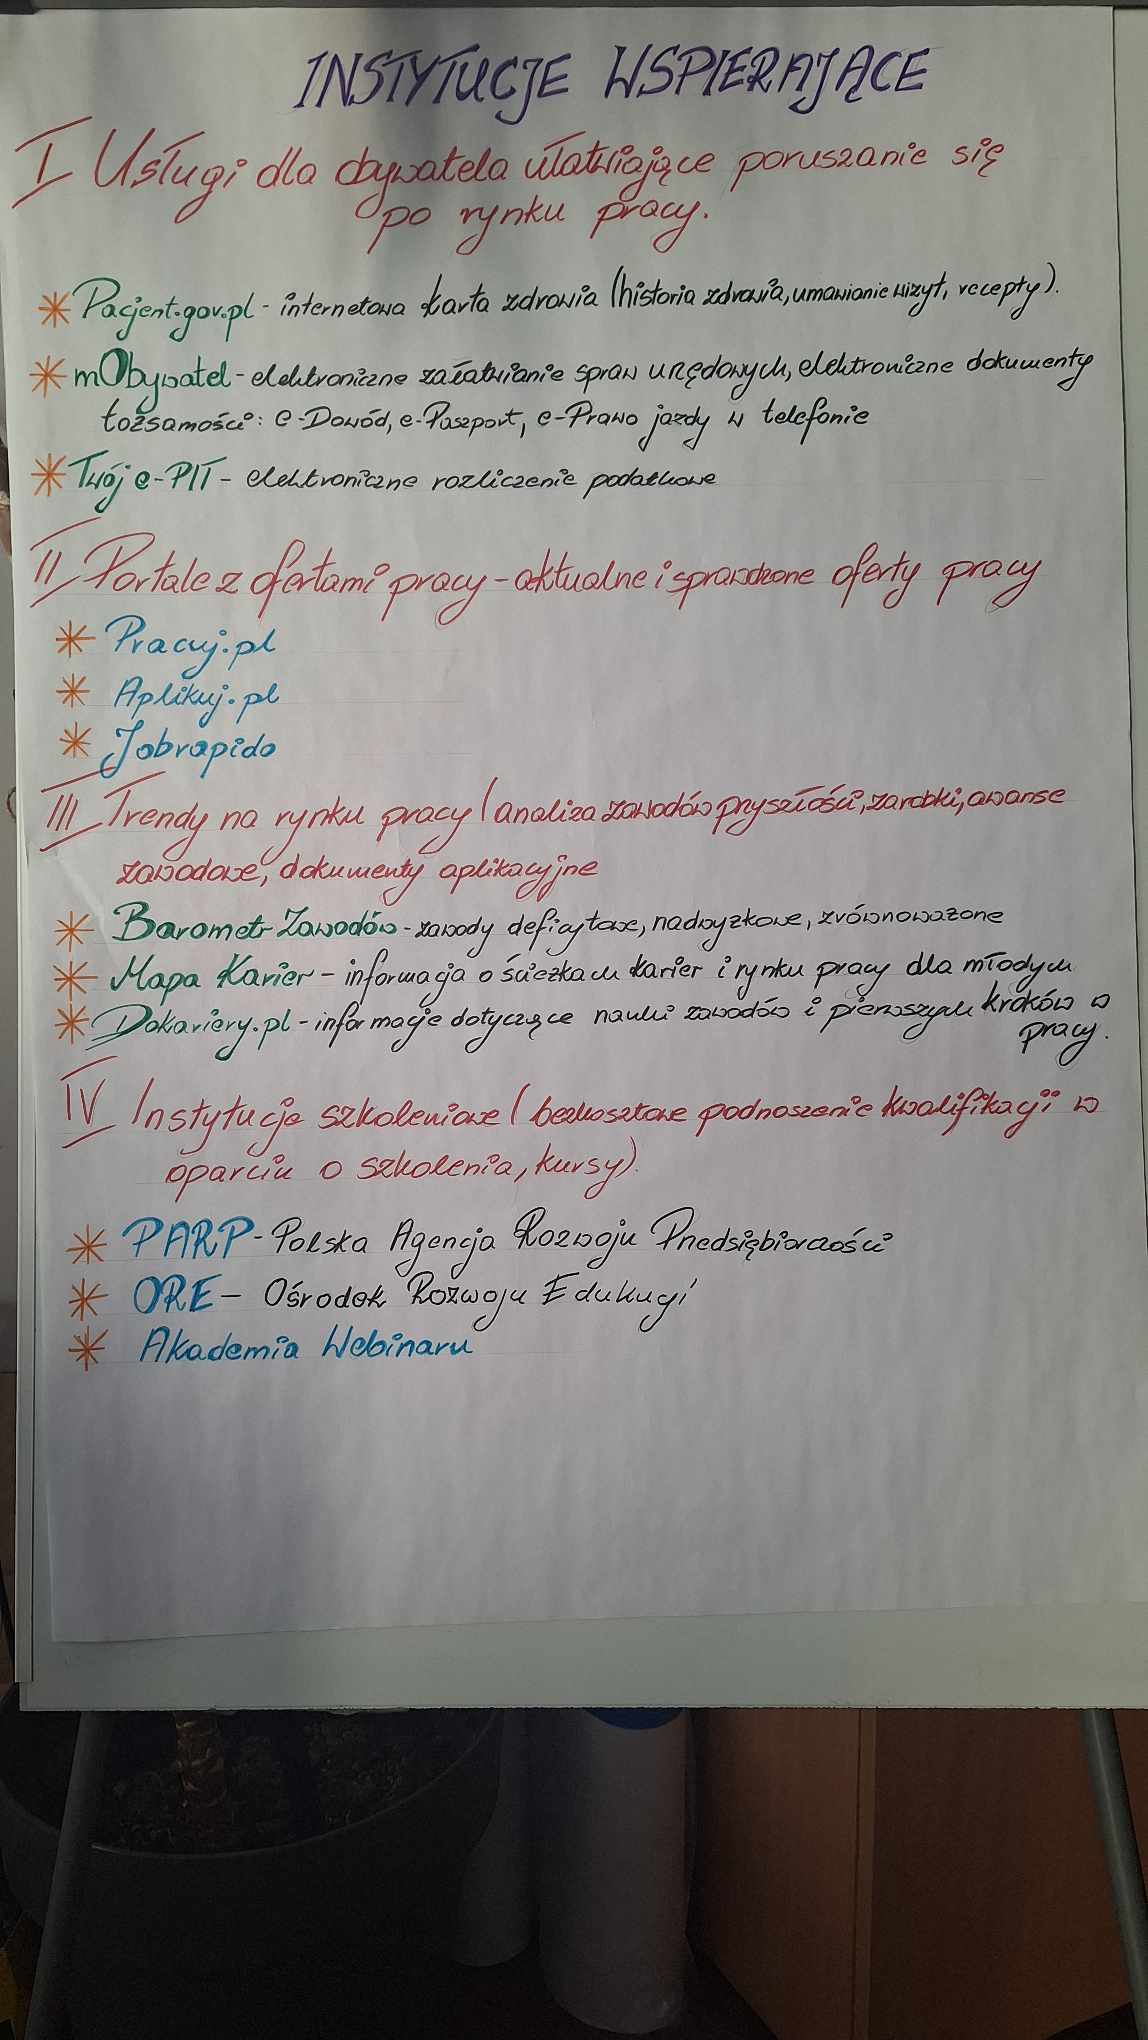 INSTYTUCJE WSPIERAJĄCE
I Usługi dla obywatela ułatwiające poruszanie się
po rynku pracy.
* Pacjent.gov.pl - internetowa karta zdrowia (historia zdrowia, umawianie wizyt, recepty).
* mObywatel - elektroniczne załatwianie spraw urzędowych, elektroniczne dokumenty
tożsamości: e-Dowód, e-Paszport, e-Prawo jazdy w telefonie
* Twój e-PIT - elektroniczne rozliczenie podatkowe
II Portale z ofertami pracy - aktualne i sprawdzone oferty pracy
* Pracuj.pl
* Aplikuj.pl
* Jobrapido
III Trendy na rynku pracy (analiza zawodów przyszłości, zarobki, awanse
zawodowe, dokumenty aplikacyjne
* Barometr Zawodów - zawody deficytowe, nadwyżkowe, zrównoważone
* Mapa Karier - informacja o ścieżkach karier i rynku pracy dla młodych
* Dokariery.pl - informacje dotyczące nauki zawodów i pierwszych kroków w
pracy.
IV Instytucje szkoleniowe (bezkosztowe podnoszenie kwalifikacji w
oparciu o szkolenia, kursy).
* PARP - Polska Agencja Rozwoju Przedsiębiorczości
* ORE - Ośrodek Rozwoju Edukacji
* Akademia Webinaru